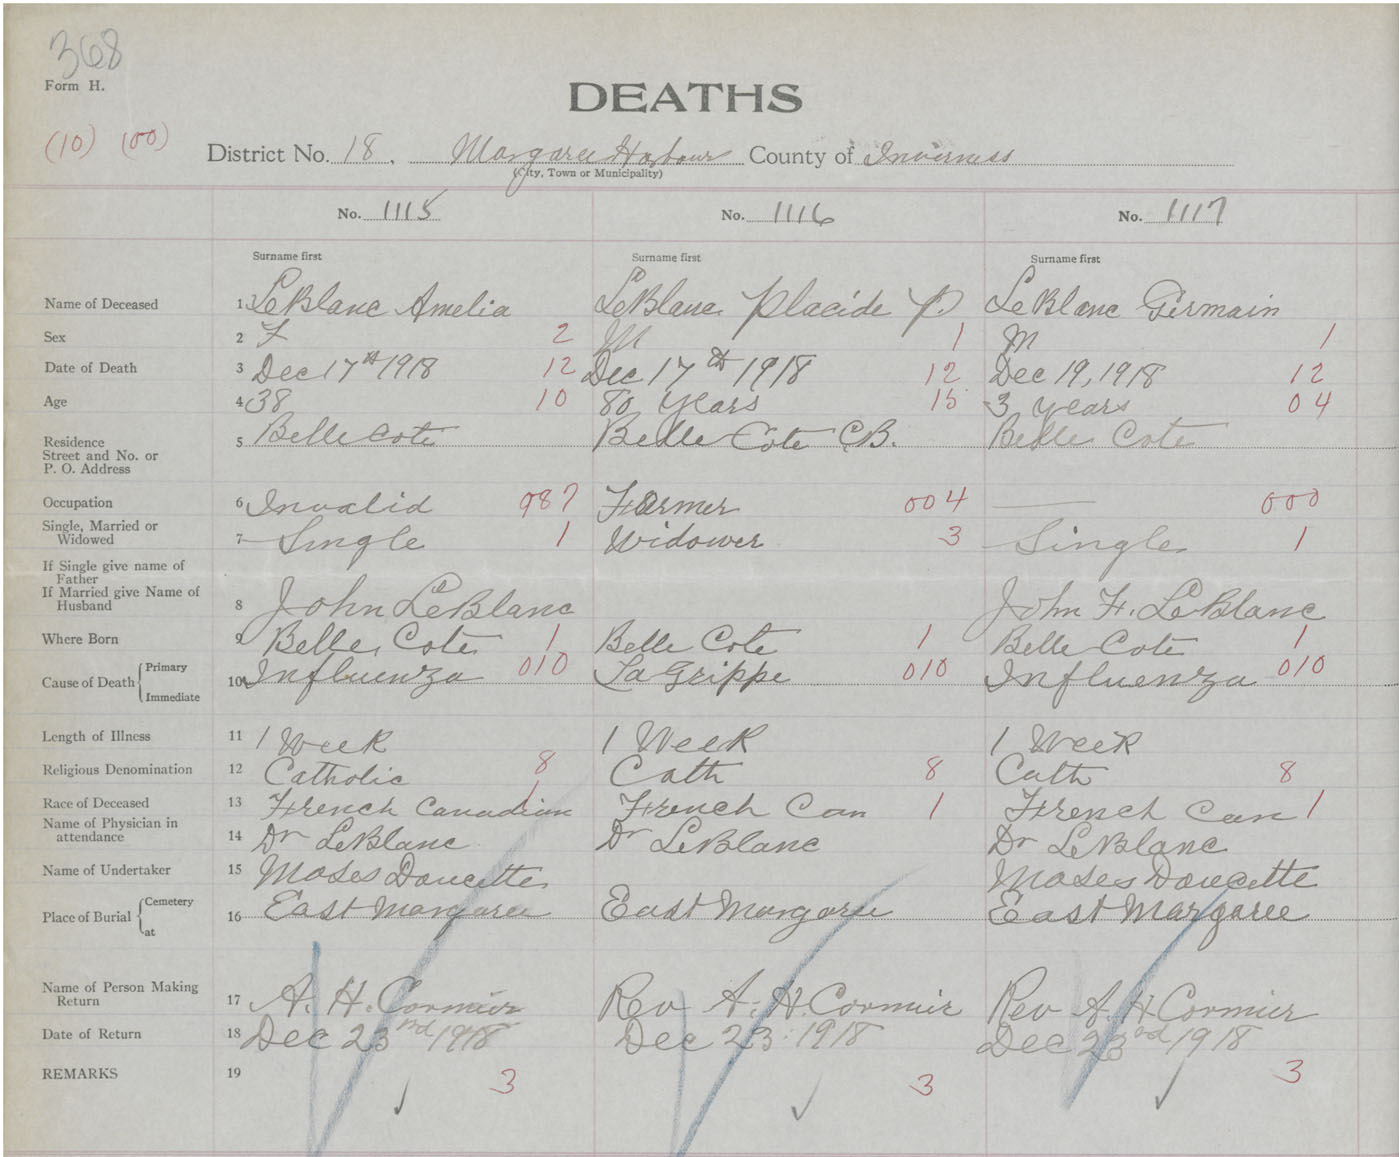 368
Form H.
DEATHS
(10) (00)
District No. 18. Margaree Harbour County of Inverness
(City, Town or Municipality)
No. 1115 No. 1116 No. 1117
Surname first Surname first Surname first
Name of Deceased 1 LeBlanc Amelia LeBlanc Placide P. LeBlanc Germain
Sex 2 F 2 M 1 M 1
Date of Death 3 Dec 17th 1918 12 Dec 17th 1918 12 Dec 19, 1918 12
Age 4 38 10 80 Years 15 3 Years 04
Residence 5 Belle Cote Belle Cote C.B. Belle Cote
Street and No. or
P. O. Address
Occupation 6 Invalid 987 Farmer 004 — 000
Single, Married or
Widowed 7 Single 1 Widower 3 Single 1
If Single give name of
Father
If Married give Name of
Husband 8 John LeBlanc John F. LeBlanc
Where Born 9 Belle Cote 1 Belle Cote 1 Belle Cote 1
Cause of Death { Primary
Immediate 10 Influenza 010 La Grippe 010 Influenza 010
Length of Illness 11 1 Week 1 Week 1 Week
Religious Denomination 12 Catholic 8 Cath 8 Cath 8
Race of Deceased 13 French Canadian 1 French Can 1 French Can 1
Name of Physician in
attendance 14 Dr LeBlanc Dr LeBlanc Dr LeBlanc
Name of Undertaker 15 Moses Doucette Moses Doucette
Place of Burial { Cemetery
at 16 East Margaree East Margaree East Margaree
Name of Person Making
Return 17 A. H. Cormier Rev A. H. Cormier Rev A. H Cormier
Date of Return 18 Dec 23rd 1918 Dec 23. 1918 Dec 23rd 1918
REMARKS 19 ✓ 3 ✓ 3 ✓ 3